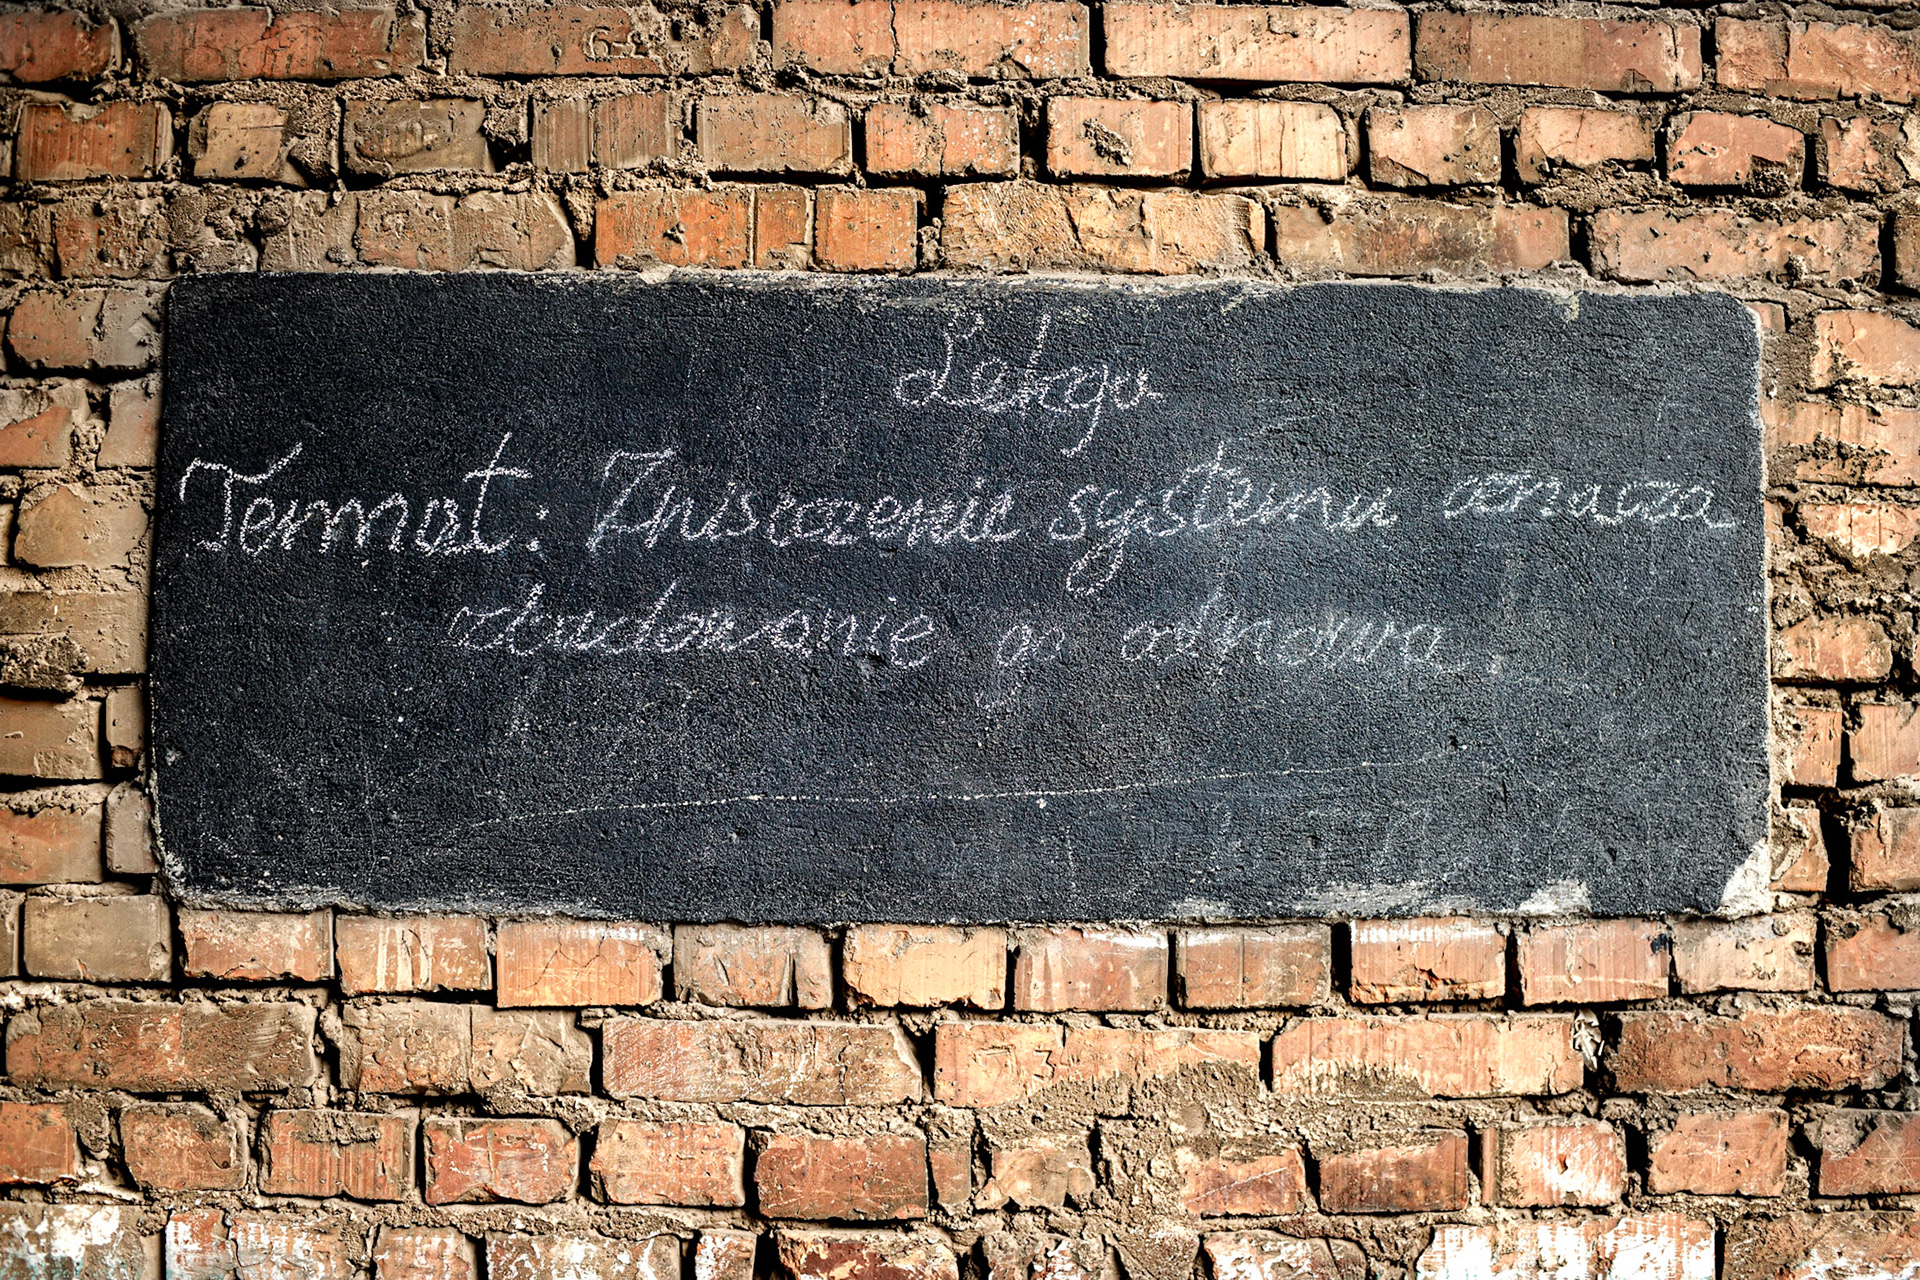 Lekcja
Temat: Zniszczenie systemu oznacza
zbudowanie go od nowa.